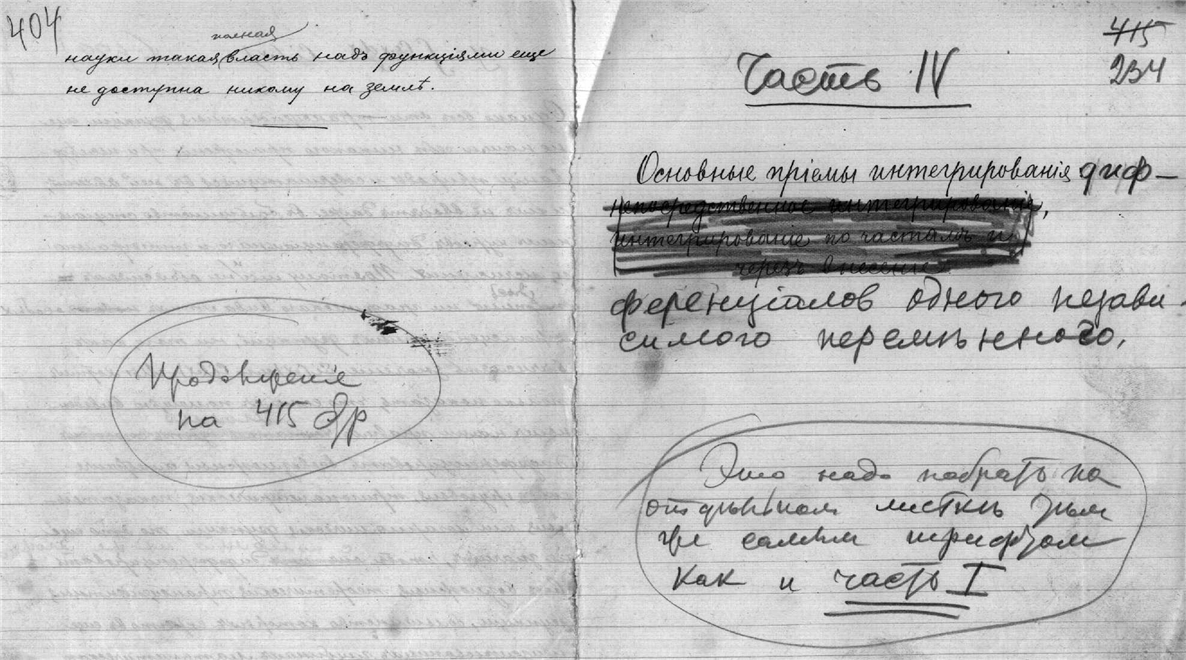 404
полная
науки такая власть надъ функціями еще
не доступна никому на землѣ.
Продолженіе
на 415
415
234
Часть IV
Основные пріемы интегрированія диф-
непосредственное интегрированіе,
интегрированіе по частямъ и
черезъ внесеніе
ференціалов одного незави-
симого перемѣнного.
Это надо набрать на
отдѣльном листкѣ
же самым шрифтом
как и часть I